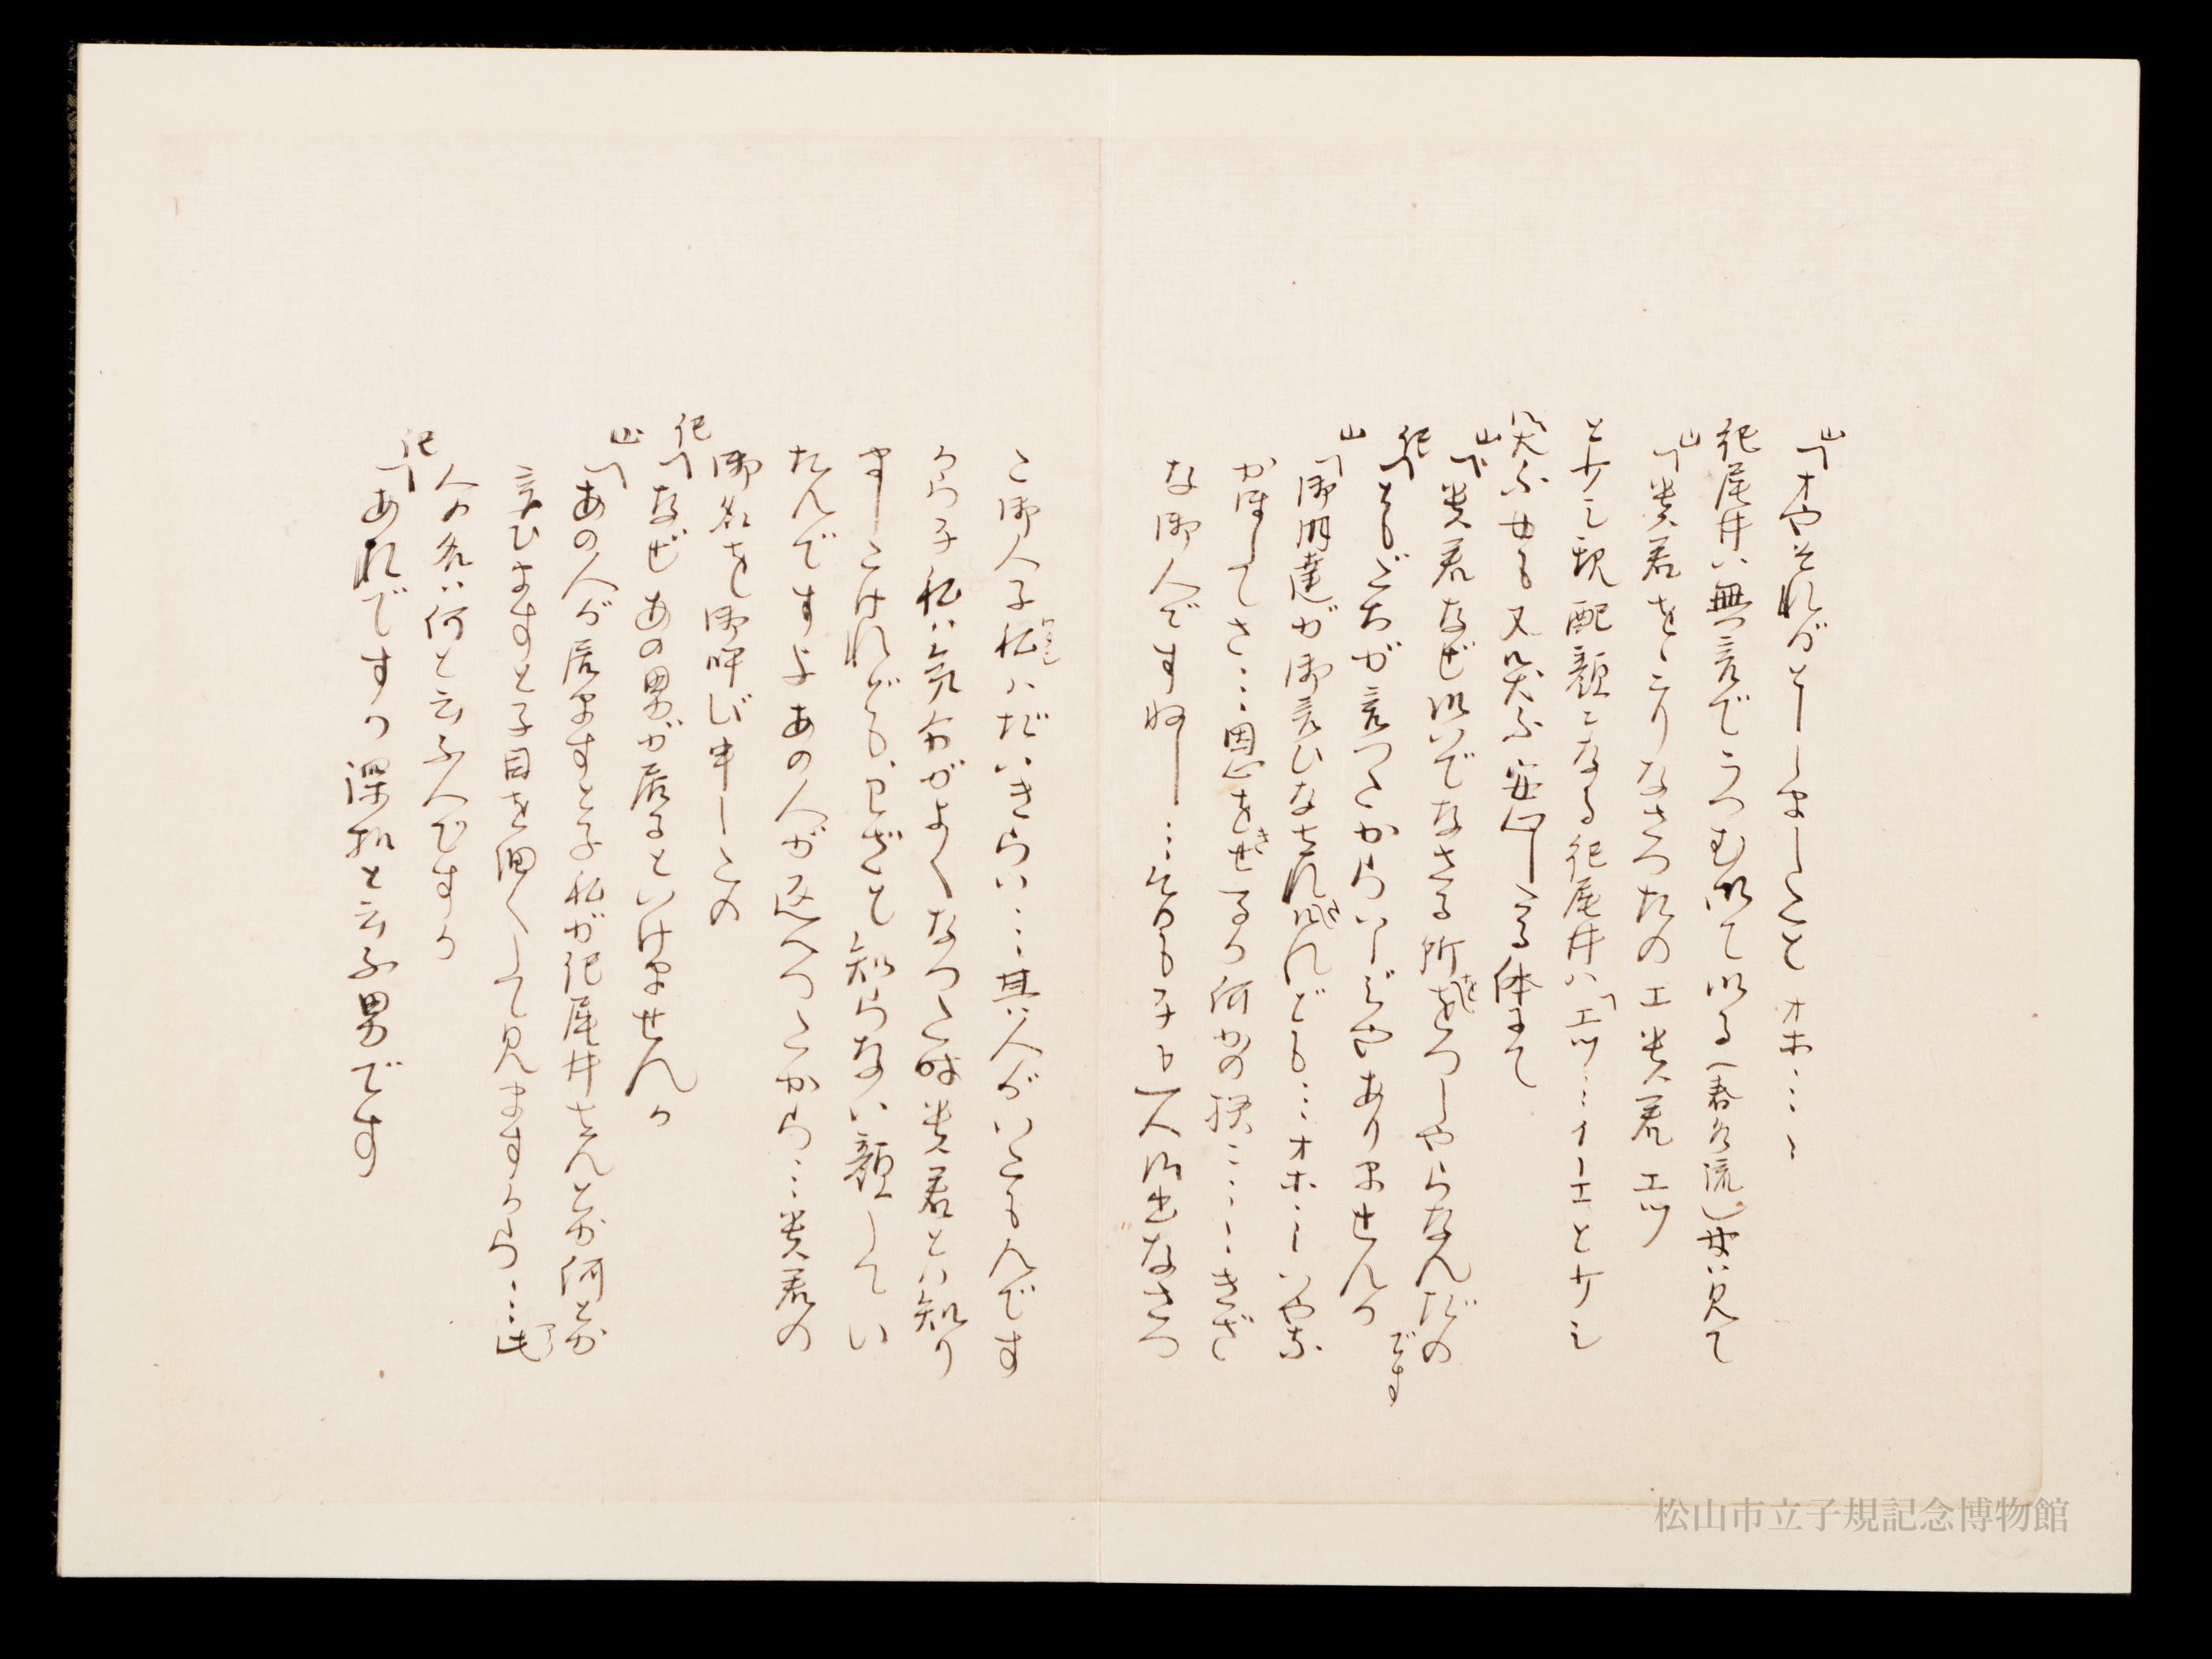 山「オヤそれがどーしましたとオホ……
紀尾井ハ無言でうつむいて居る(春水流)女ハ見て
山「貴君をこりなさつたのエ貴君エツ
と少し心配顔になる紀尾井ハ「エツ……ナーエと少し
笑ふ女も又笑ふ安心したる体にて
山「貴君なぜ以いでなさる所をおつしやらなんだの
です
紀「ともだちが言つたからいーじやありませんか
山「御朋達が御言ひなされませんでも……オホ……いやな
かほーしてさ……恩をきせるの何かの様に……きざ
な御人ですねー……それもネよ一人御出なさつ
た御人子私ハだいきらい……其人がいたもんです
から子私ハ気分がよくなつた時貴君とハ知り
ましたけれどもわざと知らない顔してい
たんですよあの人が返へつたから……貴君の
御名を御呼び申したの
紀「なぜあの男が居るといけませんか
山「あの人が居ますと子私が紀尾井さんとか何とか
言ひますと子目を細くして見ますから……アノ
人の名ハ何と云ふ人ですか
紀「あれですか澤松と云ふ男です
松山市立子規記念博物館